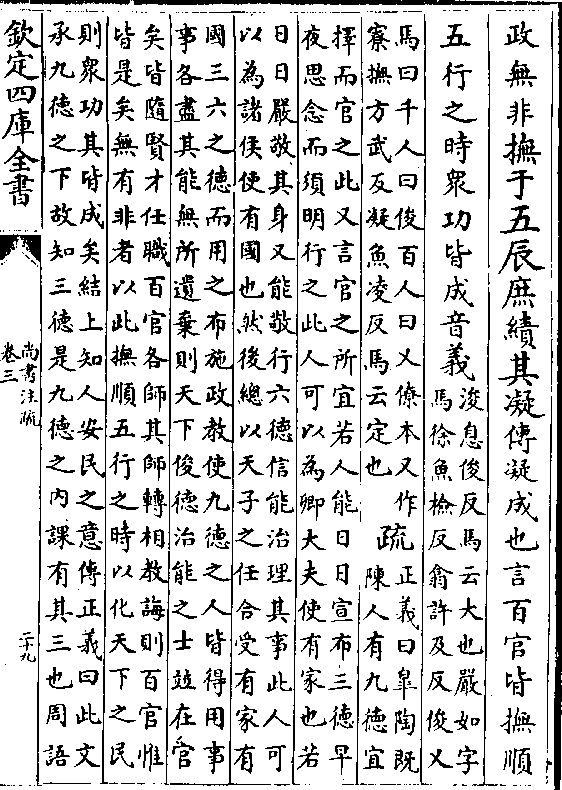 政無非撫于五辰庶績其凝傳凝成也言百官皆撫順
五行之時衆功皆成音義
浚息俊反馬云大也嚴如字
馬徐魚檢反翕許及反俊乂
馬曰千人曰俊百人曰乂僚本又作
寮撫方武反凝魚凌反馬云定也
疏
正義曰皐陶既
陳人有九德宜
擇而官之此又言官之所宜若人能日日宣布三德早
夜思念而須明行之此人可以為卿大夫使有家也若
日日嚴敬其身又能敬行六德信能治理其事此人可
以為諸侯使有國也然後總以天子之任合受有家有
國三六之德而用之布施政教使九德之人皆得用事
事各盡其能無所遺棄則天下俊德治能之士竝在官
矣皆隨賢才任職百官各師其師轉相教誨則百官惟
皆是矣無有非者以此撫順五行之時以化天下之民
則衆功其皆成矣結上知人安民之意傳正義曰此文
承九德之下故知三德是九德之內課有其三也周語
欽定四庫全書
尚書注疏
卷三
二十九